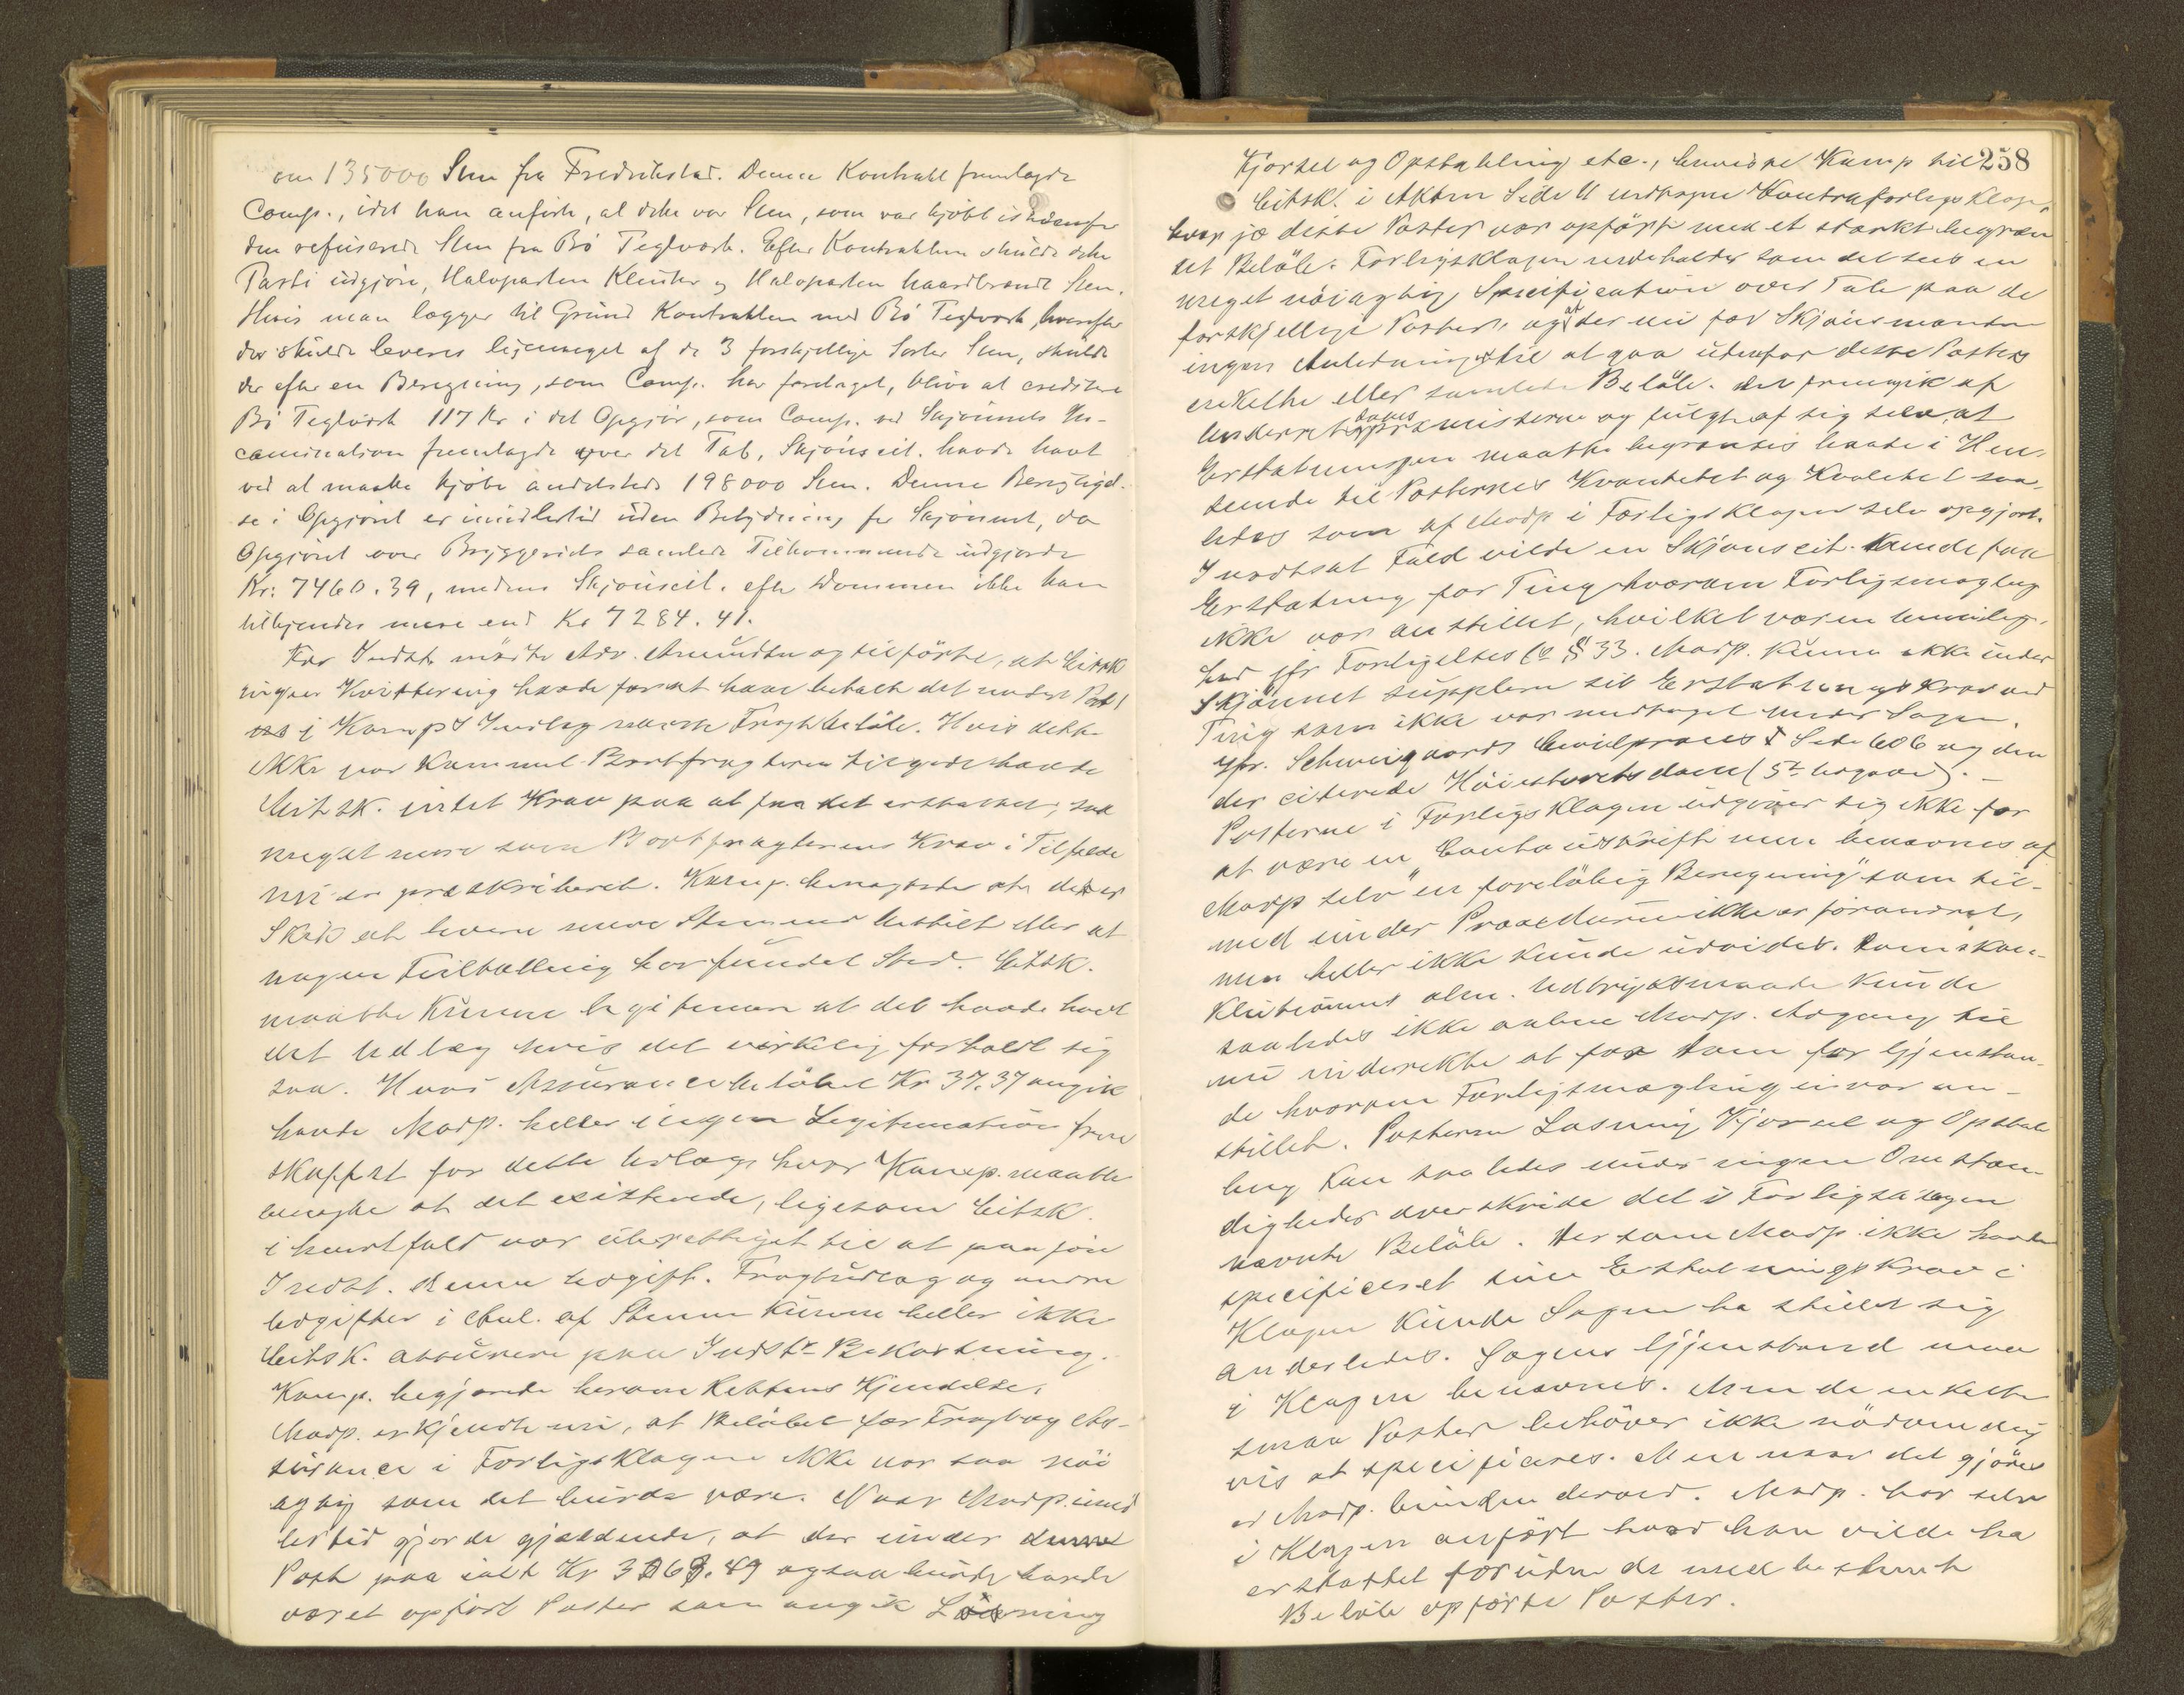 om 135000 Sten fra Fredrikstad. Denne Kontrakt fremlagde
Comp., idet han anførte, at dette var Sten, som var kjøbt istedenfor
den refuserede Sten fra Bö Teglverk. Efter Kontrakten skulde dette
Parti udgjøre, Halvparten Klinker og Halvparten haardbrændt Sten.
Hvis man lægger til Grund Kontrakten med Bö Teglverk, hvorefter
der skulde leveres ligemeget af de 3 forskjellige Sorter Sten, skulde
der efter en Beregning, som Comp. har foretaget, blive at creditere
Bö Teglverk 117 Kr i det Opgjør, som Comp. ved Skjønnets In-
camination fremlagde over det Tab, Skjønscit. havde havt
ved at maatte kjøbe andetsteds 198000 Sten. Denne Berigtigel-
se i Opgjøret er imidlertid uden Betydning for Skjønnet, da
Opgjøret over Bryggeriets samlede Tilkommende udgjorde
Kr: 7460.39, medens Skjønscit. efter Dommen ikke kan
tilkjendes mere end Kr 7284.41.
For Indst. mødte Adv. Amundsen og tilførte, at Citsk
ingen Kvittering havde for at have betalt det under Post 1
i Komp's Indlæg nævnte Fragtbeløb. Hvis dette
ikke var kommet Bortfragteren tilgode havde
Citsk. intet Krav paa at faa det erstattet, saa
meget mere som Bortfragterens Krav i Tilfælde
nu er præskriberet. Komp. benægtede at det er
Skik at levere mere Sten end bestilt eller at
nogen Tiltælling har fundet Sted. Citsk.
maatte kunne legitimere at det havde havt
det Udlæg hvis det virkelig forholdt sig
saa. Hvad Assurancebeløbet Kr 37.37 angik
havde Modp. heller ingen Legitimation frem
skaffet for dette Udlæg hvor Komp. maatte
benægte at det existerede, ligesom Citsk.
i hvert fald var uberettiget til at paaføre
Indst. denne Udgift. Fragtudlæg og andre
Udgifter i Anl. af Stenen kunne heller ikke
Citsk. assurere paa Indsts Bekostning.
Komp. begjærede herom Rettens Kjendelse.
Modp. erkjendte nu, at Beløbet for Fragt og As-
surance i Forligsklagen ikke var saa nøi
agtig som det burde være. Naar Modp. imid
lertid gjorde gjældende, at der under denne
Post paa ialt Kr 49 ogsaa burde havde
været opført Poster som angik Losning
258
Kjørsel og Opstabling etc., henviste Komp til
Citsk. i Akten Side 11 indtagne Kontraforligsklage,
hvor jo disse Poster var opført med et stærkt begræn
set Beløb. Forligsklagen indeholder som det sees en
meget nøiagtig Specification over Tale paa de
forskjellige Poster, og at der nu for Skjønsmændene
ingen Anledning er til at gaa udenfor disse Posters
enkelte eller samlede Beløb. Det fremgik af
Underretsdommens præmisserne og fulgte af sig selv, at
Erstatningen maatte begrænses baade i Hen-
seende til Posternes Kvantitet og Kvalitet saa-
ledes som af Modp i Forligsklagen selv opgjort.
I modsat Fald vilde en Skjønscit. kunde faa
Erstatning for Ting hvorom Forligsmægling
ikke var anstillet, hvilket var en umulig-
hed jfr Forligelses § 33. Modp. kunne ikke under
Skjønnet supplere sit Erstatningskrav med
Ting som ikke var medtaget under Sagen.
Jfr. Schweigaards Civilproces I Side 606 og den
der citerede Høiesteretsdom (5te Udgave). —
Posterne i Forligsklagen udgiver sig ikke for
at være en Contoudskrift men benævnes af
Modp selv "en foreløbig Beregning" som til-
med under Proceduren ikke er forandret,
men heller ikke kunde udvides. Domskon-
klusionens alm. Udtryksmaade kunde
saaledes ikke aabne Modp. Adgang til
nu indirekte at faa Dom for Gjenstan-
de hvorom Forligsmægling ei var an-
stillet. Posterne Losning, Kjørsel og Opstab
ling kan saaledes under ingen Omstæn-
digheder overskride det i Forligsklagen
nævnte Beløb. Dersom Modp. ikke havde
specificeret sine Erstatningskrav i
Klagen kunde Sagen ha stillet sig
anderledes. Sagens Gjenstand maa
i Klagen benævnes. Men de enkelte
smaa Poster behøver ikke nødvendig
vis at specificeres. Men naar det gjøres
er Modp. bunden derved. Modp. har selv
i Klagen anført hvad han vilde ha
erstattet foruden de med bestemte
Beløb opførte Poster.